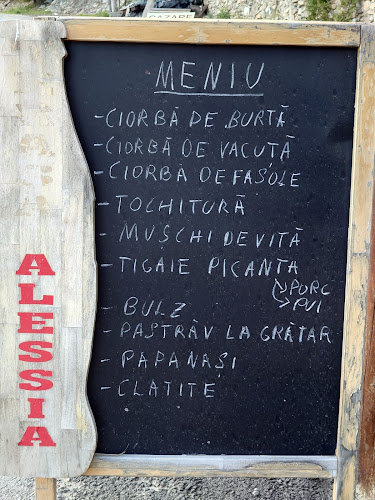 CAZARE
MENIU
-CIORBĂ DE BURTĂ
-CIORBĂ DE VACUȚĂ
-CIORBA DE FASOLE
-TOCHITURĂ
-MUȘCHI DE VITĂ
-TIGAIE PICANTA
PORC
PUI
-BULZ
-PASTRĂV LA GRĂTAR
-PAPANAȘI
-CLATITE
ALESSIA